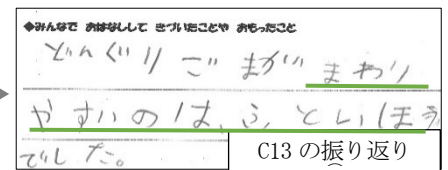 ◆みんなで おはなしして きづいたことや おもったこと
どんぐりごまが まわり
やすいのは、ふとしいほう
でした。
C13 の振り返り